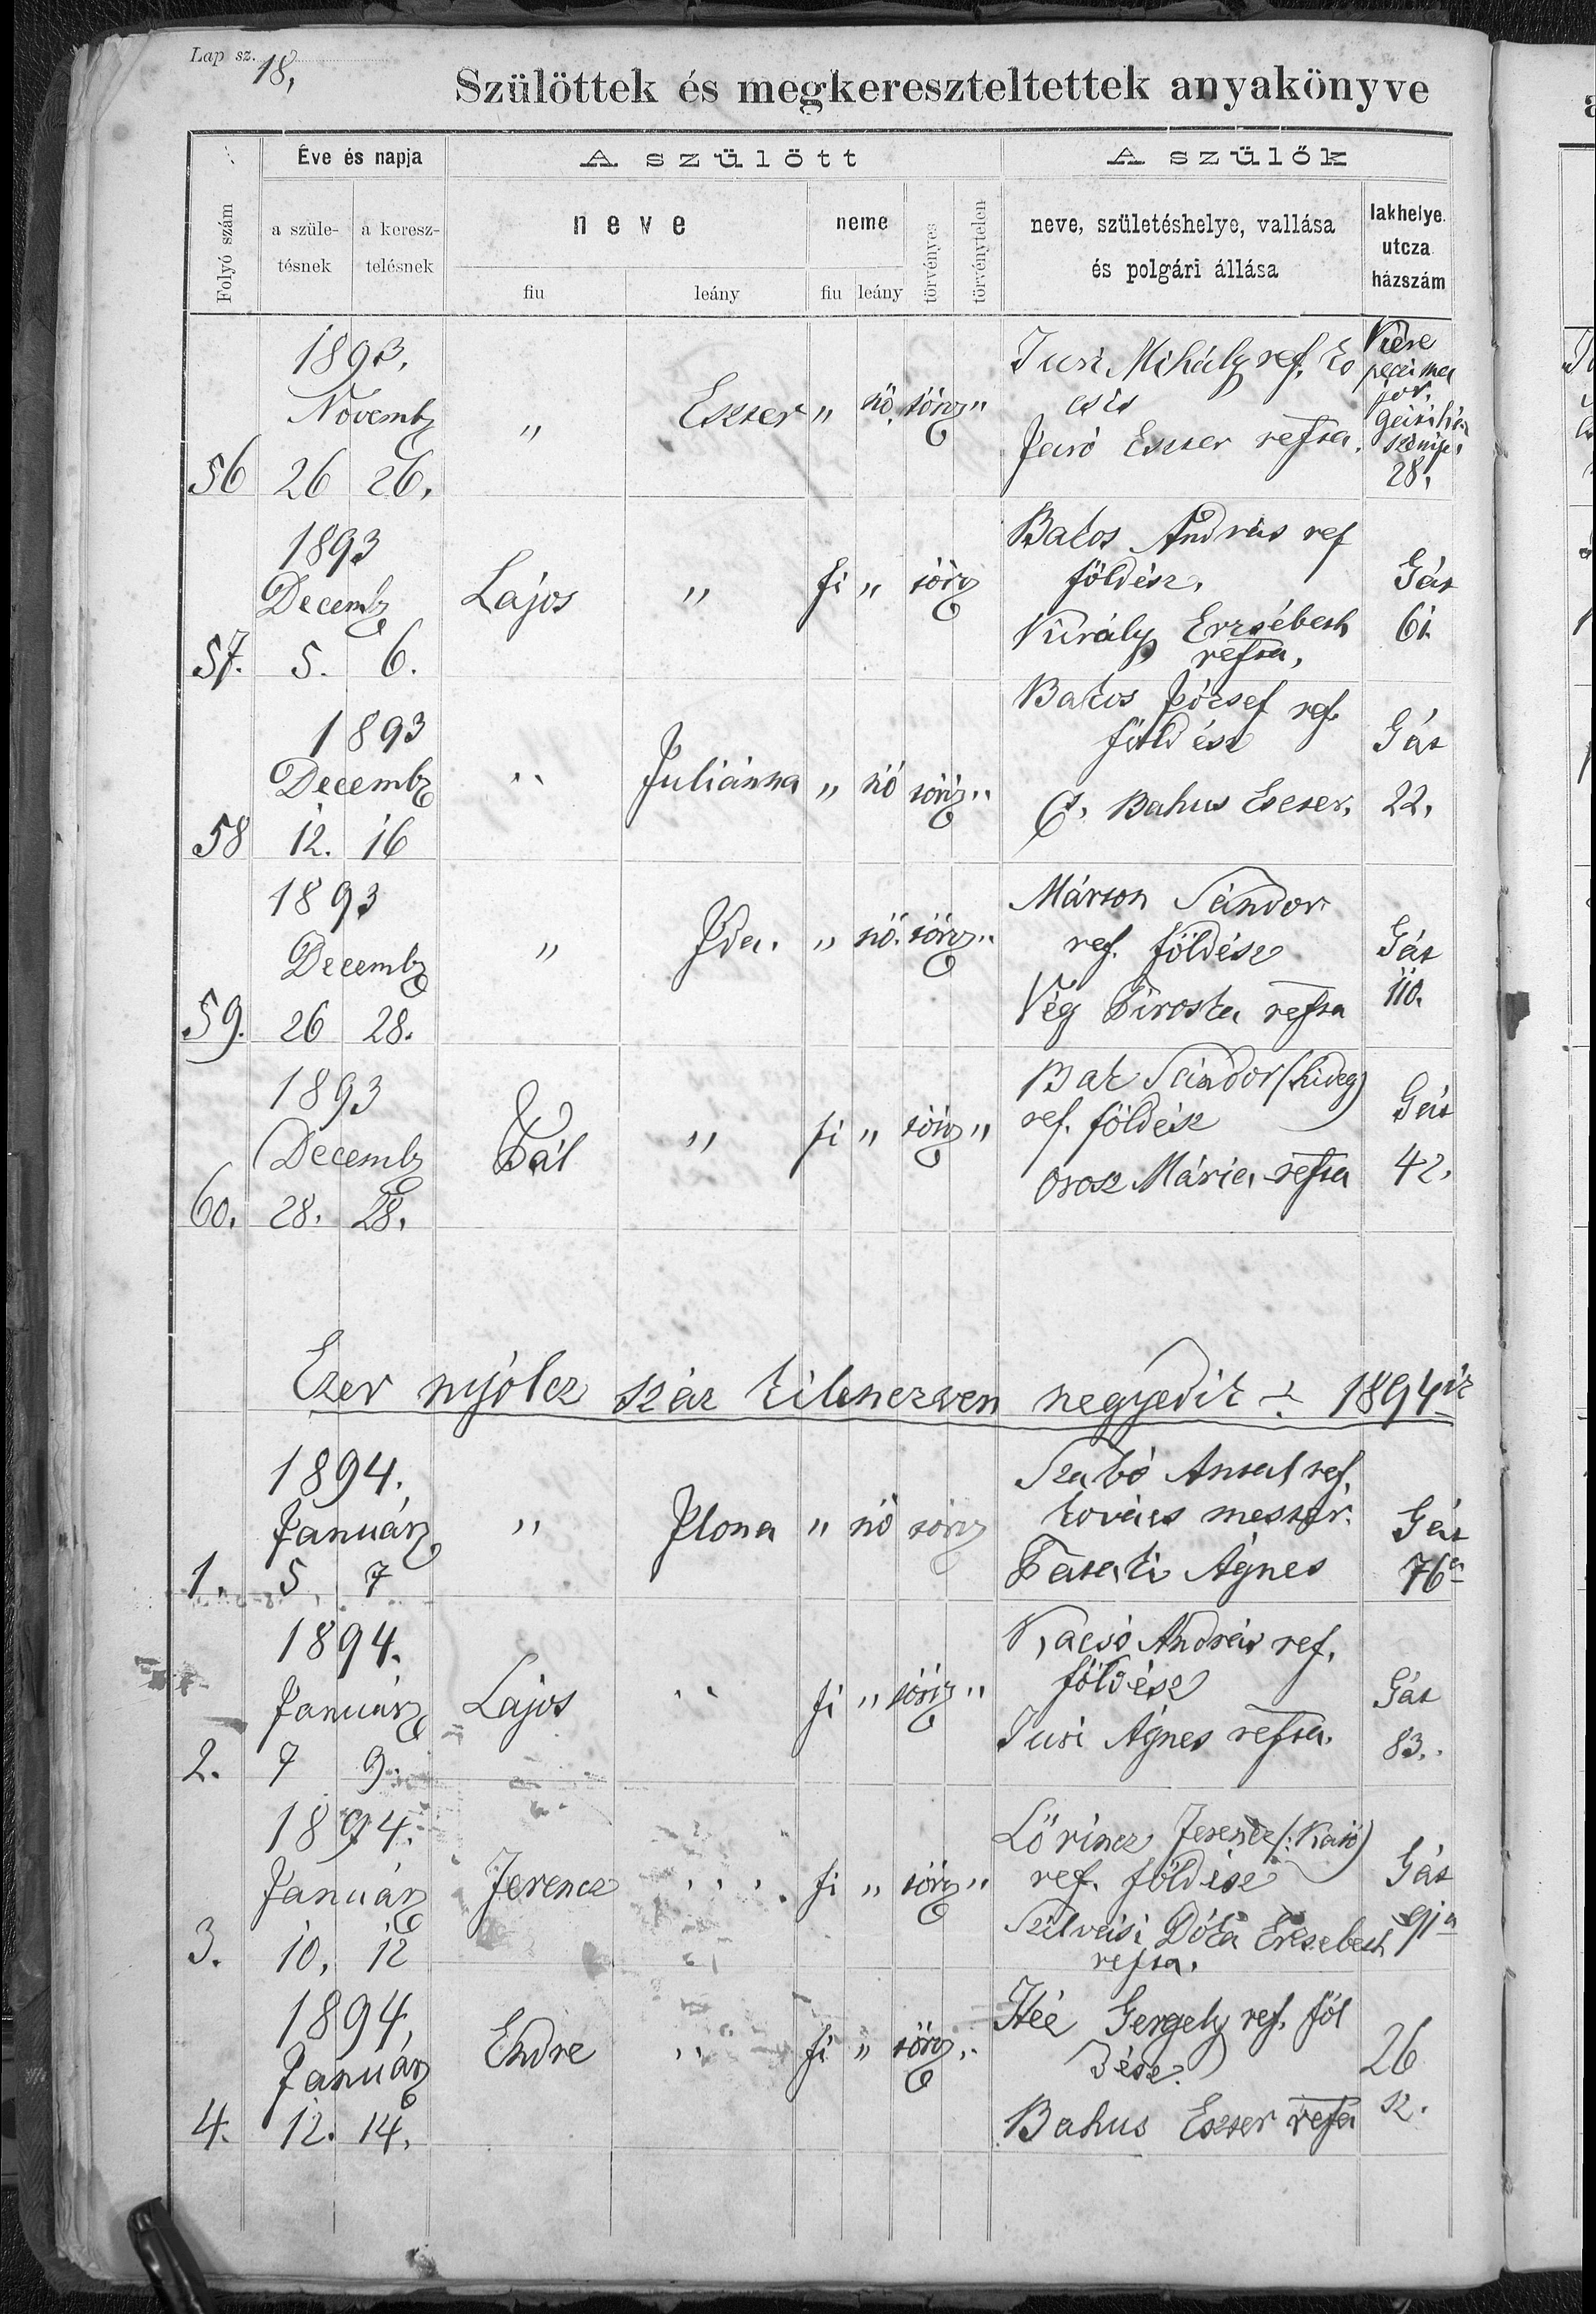 Lap sz. 18,
Szülöttek és megkereszteltettek anyakönyve
Folyó szám
Éve és napja
a szüle-tésnek
a keresz-telésnek
A szülött
neve
fiu
leány
neme
fiu
leány
törvényes
törvénytelen
A szülők
neve, születéshelye, vallása
és polgári állása
lakhelye.
utcza
házszám
56 1893. Novemb 26 26, " Eszter " nő törv "
Tusi Mihály ref.
Eszter refta.
28,
57. 1893 Decemb 5. 6. Lajos " fi " törv
Bakos András ref
földész,
Király Erzsébeth
refta,
Gát
61.
58 1893 Decemb 12. 16 " Juliánna " nő törv "
Bakos József ref.
földész
Bahus Eszter,
Gát
22,
59. 1893 Decemb 26 28. " Ida. " nő. törv "
Márton Sándor
ref. földész
Vég Piroska refta
Gát
110.
60. 1893 Decemb 28. 28. Pál " fi " törv "
Bak Sándor (hideg)
ref. földész
Orosz Mária refta
Gát
42,
Ezer nyólcz száz kilenczven negyedik 1894ik
1. 1894. Január 5 7 " Ilona " nő törv
Szabó Antal ref.
kovács mester.
Pataki Ágnes
Gát
76a
2. 1894. Január 7 9. Lajos " fi " törv "
Kacsó András ref.
földész
Tusi Ágnes refta.
Gát
83.
3. 1894. Január 10, 12 Ferencz " fi " törv "
Lőrincz Ferencz
ref. földész
Szilvási Dóka Erzsebeth
refta.
Gát
91a
4. 1894, Január 12. 14, Endre " fi " törv "
Gergely ref. föl
dész.
Bahus Eszter refta
26
sz.